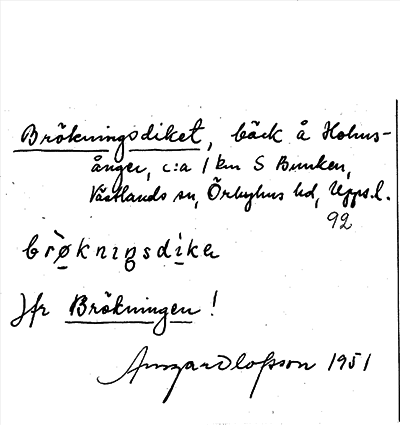 Brökningsdiket, bäck å Hohus-
ånger, c:a 1 km S Bunken,
Västlands sn, Örbyhus hd, Upps.l.
92
brøkniŋsdikə
Jfr Brökningen!
Olofsson 1951